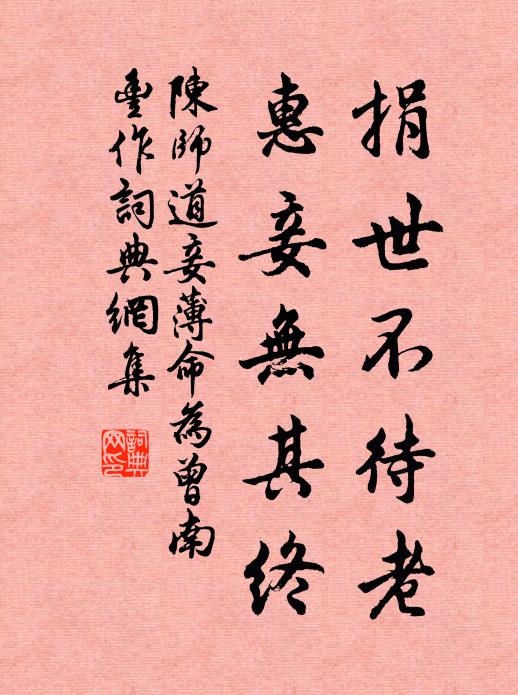 捐世不待老
惠妾無其終
陳師道妾薄命為曾南
豐作詞典網集
詞典網印